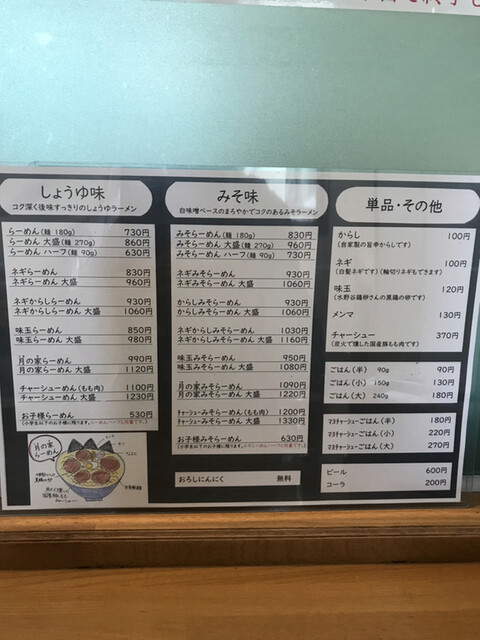 しょうゆ味
コク深く後味すっきりのしょうゆラーメン
らーめん(麺 180g) 730円
らーめん 大盛(麺 270g) 860円
らーめん ハーフ(麺 90g) 630円
ネギらーめん 830円
ネギらーめん 大盛 960円
ネギからしらーめん 930円
ネギからしらーめん 大盛 1060円
味玉らーめん 850円
味玉らーめん 大盛 980円
月の家らーめん 990円
月の家らーめん 大盛 1120円
チャーシューめん(もも肉) 1100円
チャーシューめん 大盛 1230円
お子様らーめん 530円
(小学生以下のお子様に限ります。らーめんハーフと同量です。)
月の家
らーめん
みそ味
白味噌ベースのまろやかでコクのあるみそラーメン
みそらーめん(麺 180g) 830円
みそらーめん 大盛(麺 270g) 960円
みそらーめん ハーフ(麺 90g) 730円
ネギみそらーめん 930円
ネギみそらーめん 大盛 1060円
からしみそらーめん 930円
からしみそらーめん 大盛 1060円
ネギからしみそらーめん 1030円
ネギからしみそらーめん 大盛 1160円
味玉みそらーめん 950円
味玉みそらーめん 大盛 1080円
月の家みそらーめん 1090円
月の家みそらーめん 大盛 1220円
チャーシューみそらーめん(もも肉) 1200円
チャーシューみそらーめん 大盛 1330円
お子様みそらーめん 630円
(小学生以下のお子様に限ります。みそらーめんハーフと同量です。)
おろしにんにく 無料
単品・その他
からし 100円
(自家製の旨辛からしです)
ネギ 100円
(白髪ネギです)(輪切りネギもできます)
味玉 120円
(水野谷鶏卵さんの黒鶏の卵です)
メンマ 130円
チャーシュー 370円
(炭火で燻した国産豚もも肉です)
ごはん(半) 90g 90円
ごはん(小) 150g 130円
ごはん(大) 240g 180円
マヨチャーシューごはん(半) 180円
マヨチャーシューごはん(小) 220円
マヨチャーシューごはん(大) 270円
ビール 600円
コーラ 200円